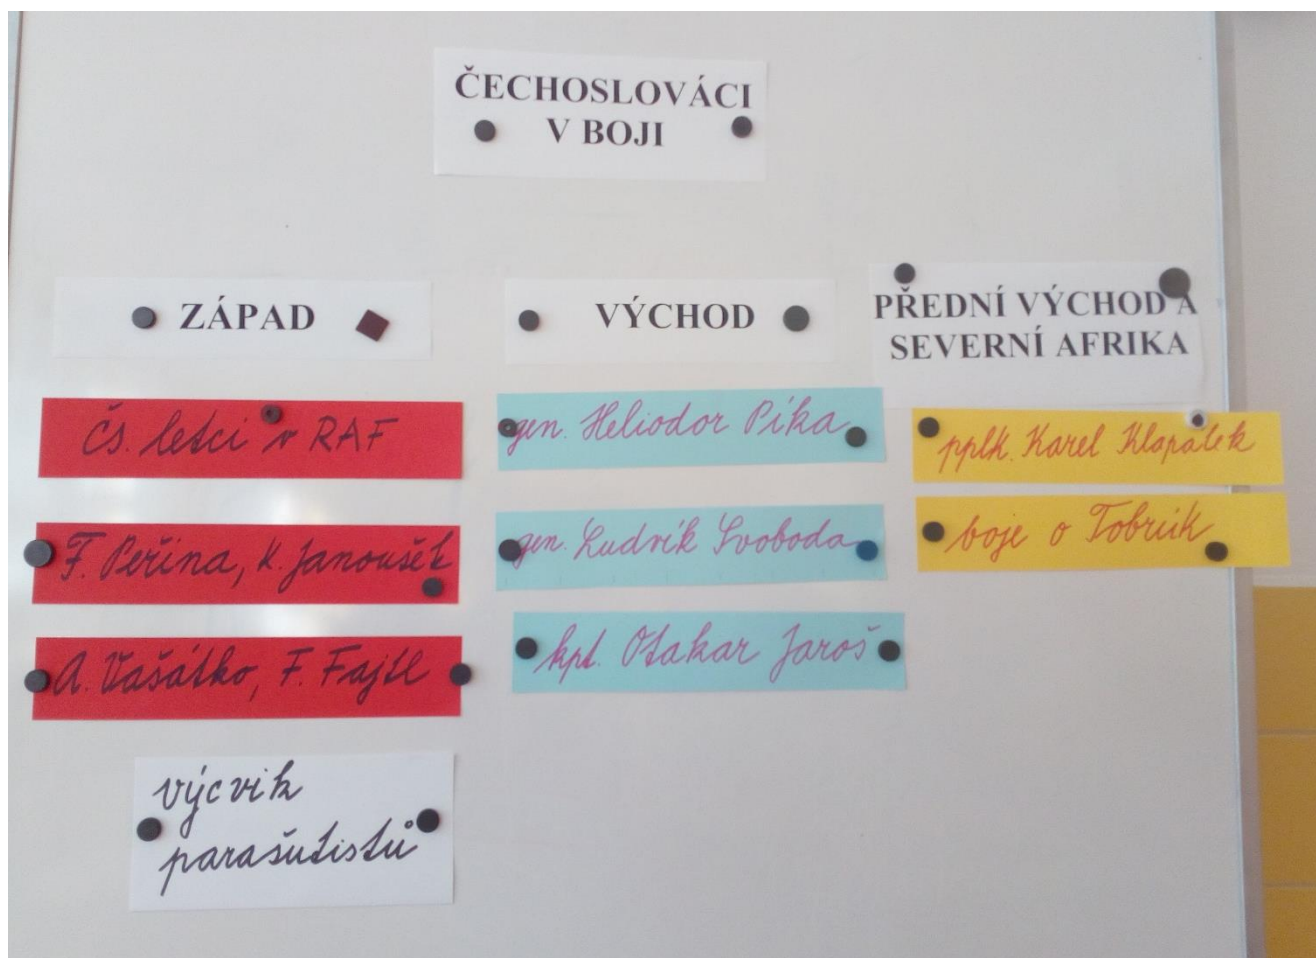 ČECHOSLOVÁCI
V BOJI
ZÁPAD
čs. letci v RAF
F. Peřina, K. Janoušek
A. Vašátko, F. Fajtl
výcvik
parašutistů
VÝCHOD
gen. Heliodor Píka
gen. Ludvík Svoboda
kpt. Otakar Jaroš
PŘEDNÍ VÝCHOD A
SEVERNÍ AFRIKA
pplk. Karel Klapálek
boje o Tobrúk